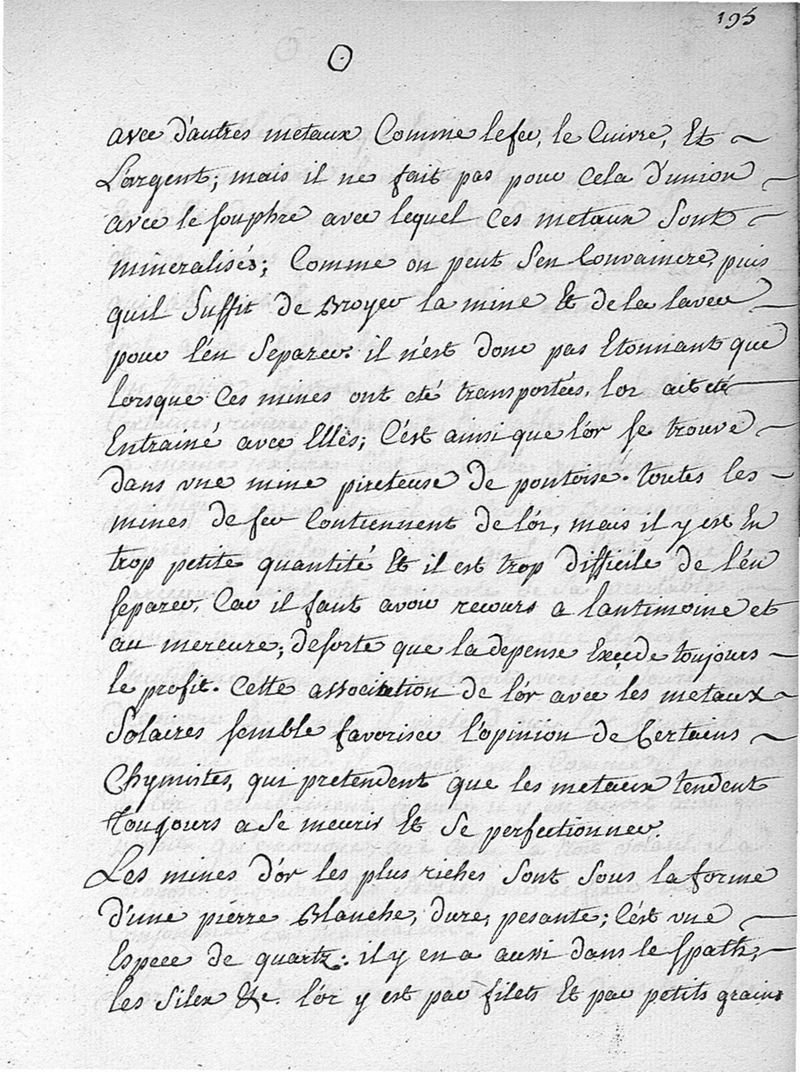 195
☉
avec d'autres metaux Comme le fer, le Cuivre, Et
L'argent; mais il ne fait pas pour Cela d'union
avec le souphre avec lequel Ces metaux Sont
mineralisés; Comme on peut S'en Convaincre, puis
quil Suffit de Broyer la mine Et de la laver
pour l'en Separer. il n'est donc pas Etonnant que
lorsque Ces mines ont eté transportées, l'or ait eté
Entrainé avec Elles; C'est ainsi que l'or se trouve
dans une mine piriteuse de pontoise. toutes les
mines de fer Contiennent de l'or, mais il y est En
trop petite quantité Et il est trop difficile de l'en
separer, Car il faut avoir recours a lantimoine et
au mercure; de sorte que la depense Exçede toujours
le profit. Cette association de l'or avec les metaux
Solaires semble favoriser l'opinion de Certains
Chymistes, qui pretendent que les metaux tendent
Toujours a Se meurir Et Se perfectionner.
Les mines d'or les plus riches Sont Sous la forme
d'une pierre Blanche, dure, pesante; C'est une
Espece de quartz: il y en a aussi dans le spath,
les Silex &c. l'or y est par filets Et par petits grains